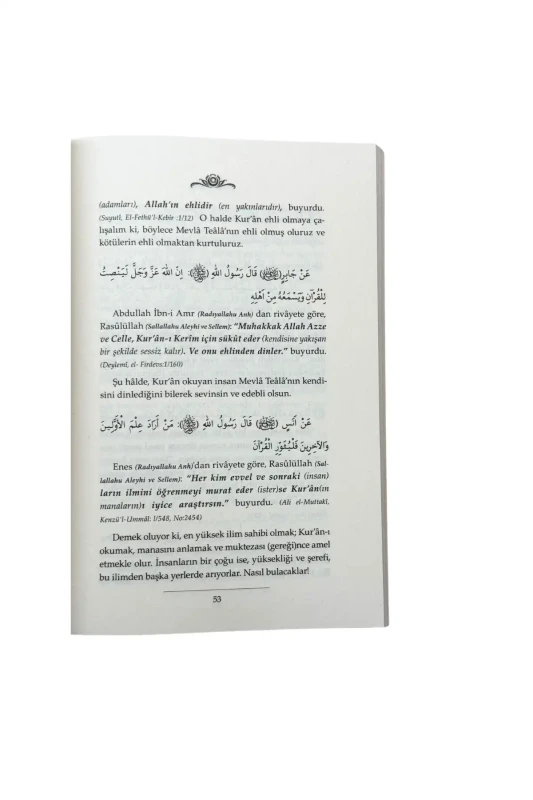 (adamları), Allah'ın ehlidir (en yakınlarıdır), buyurdu.
(Suyutî, El-Fethü'l-Kebîr :1/12) O halde Kur'ân ehli olmaya ça-
lışalım ki, böylece Mevlâ Teâlâ'nın ehli olmuş oluruz ve
kötülerin ehli olmaktan kurtuluruz.
عَنْ جَابِرٍ (ﷺ) قَالَ رَسُولُ اللهِ (ﷺ): اِنَّ اللهَ عَزَّ وَجَلَّ لَيَنْصِتُ
لِلْقُرْآنِ وَيَسْمَعُهُ مِنْ اَهْلِهِ
Abdullah İbn-i Amr (Radıyallahu Anh) dan rivâyete göre,
Rasûlüllah (Sallallahu Aleyhi ve Sellem): "Muhakkak Allah Azze
ve Celle, Kur'ân-ı Kerîm için sükût eder (kendisine yakışan
bir şekilde sessiz kalır). Ve onu ehlinden dinler." buyurdu.
(Deylemî, el- Firdevs:1/160)
Şu hâlde, Kur'ân okuyan insan Mevlâ Teâlâ'nın kendi-
sini dinlediğini bilerek sevinsin ve edebli olsun.
عَنْ اَنَسٍ () قَالَ رَسُولُ اللهِ (ﷺ): مَنْ اَرَادَ عِلْمَ الْاَوَّلِينَ
وَالْآخِرِينَ فَلْيُثَوِّرِ الْقُرْآنَ
Enes (Radıyallahu Anh)'dan rivâyete göre, Rasûlüllah (Sal-
lallahu Aleyhi ve Sellem): "Her kim evvel ve sonraki (insan)
ların ilmini öğrenmeyi murat eder (ister)se Kur'ân(ın
manaların)ı iyice araştırsın." buyurdu. (Ali el-Muttakî,
Kenzü'l-Ummâl: l/548, No:2454)
Demek oluyor ki, en yüksek ilim sahibi olmak; Kur'ân-ı
okumak, manasını anlamak ve muktezası (gereği)nce amel
etmekle olur. İnsanların bir çoğu ise, yüksekliği ve şerefi,
bu ilimden başka yerlerde arıyorlar. Nasıl bulacaklar!
53